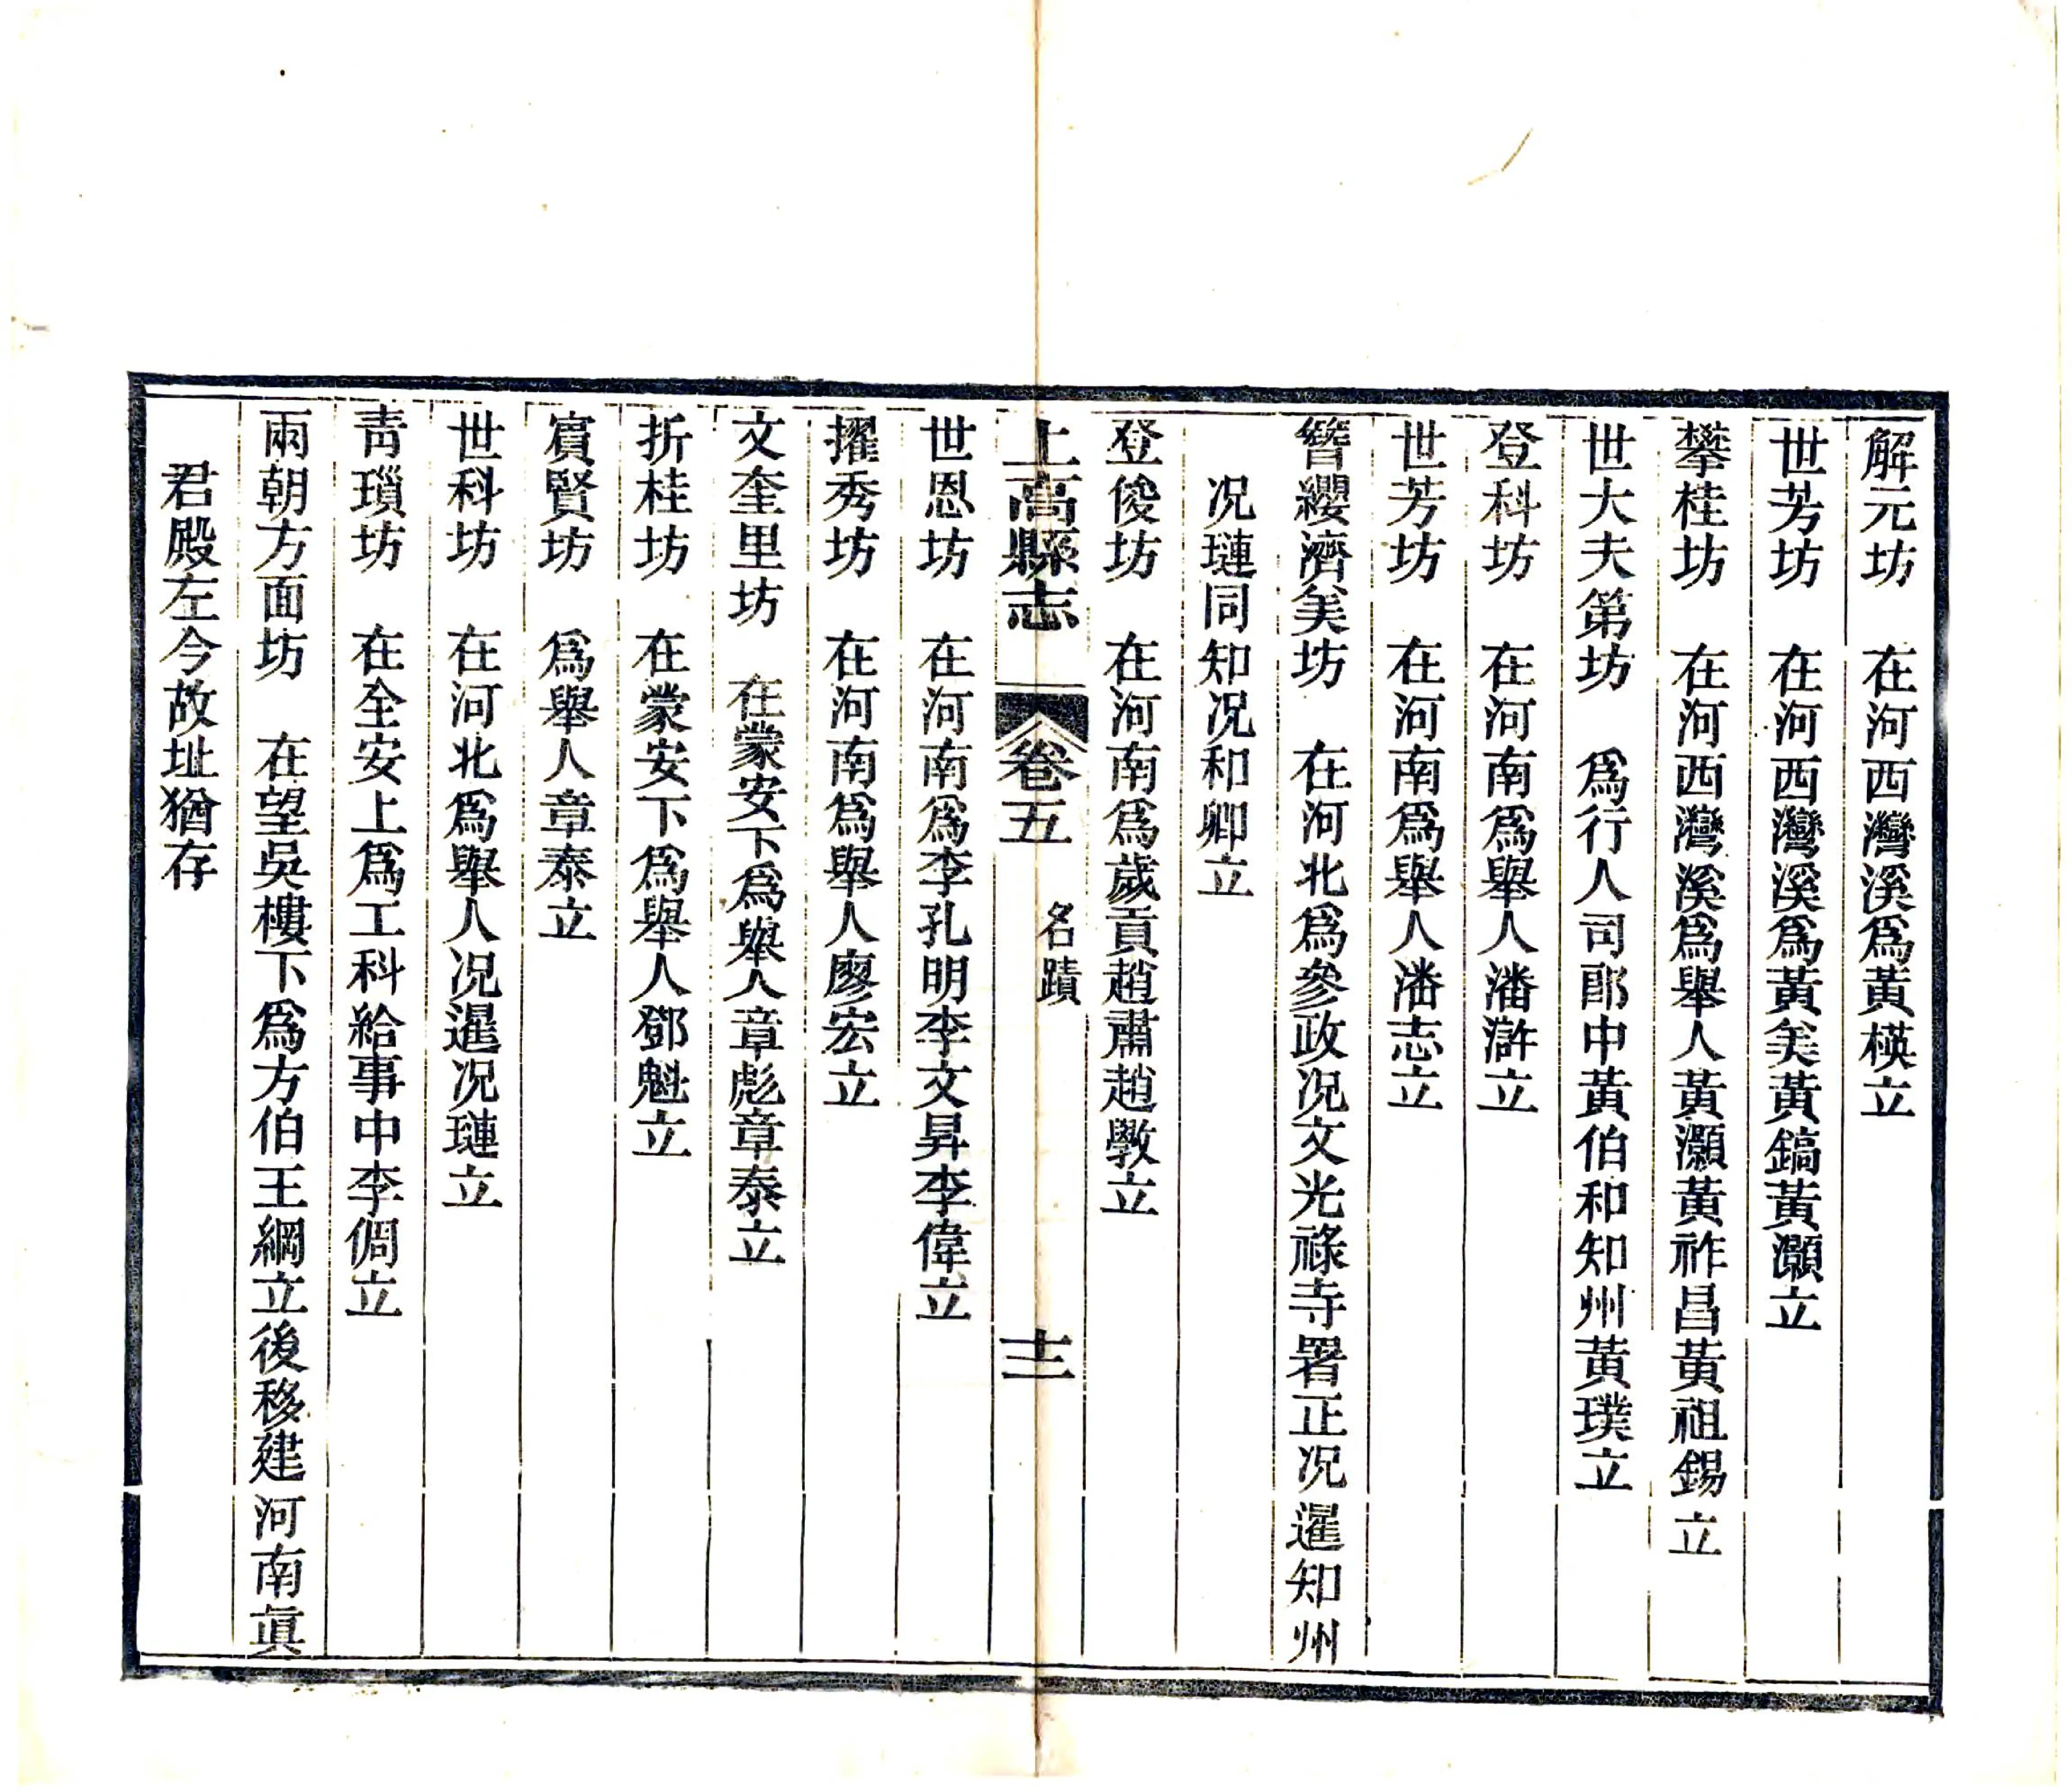 解元坊　在河西灣溪爲黃模立
世芳坊　在河西灣溪爲黃矣黃鎬黃灝立
攀桂坊　在河西灣溪爲舉人黃灝黃祚昌黃祖錫立
世大夫第坊　爲行人司郎中黃伯和知州黃璞立
登科坊　在河南爲舉人潘滸立
世芳坊　在河南爲舉人潘志立
簪纓濟美坊　在河北爲參政况文光祿寺署正况暹知州
况璉同知况和卿立
登俊坊　在河南爲歲貢趙肅趙斆立
上高縣志　卷五　名蹟　十三
世恩坊　在河南爲李孔明李文昇李偉立
擢秀坊　在河南爲舉人廖宏立
文奎里坊　在蒙安下爲舉人章彪章泰立
折桂坊　在蒙安下爲舉人鄧魁立
賔賢坊　爲舉人章泰立
世科坊　在河北爲舉人况暹况璉立
青瑣坊　在全安上爲工科給事中李倜立
兩朝方面坊　在望吳樓下爲方伯王綱立後移建河南眞
君殿左今故址猶存